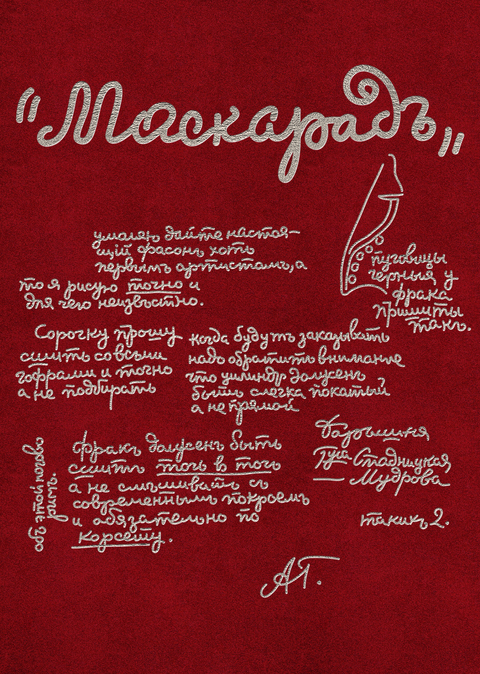 "Маскарадъ"
умоляю дайте настоя-
щiй фасонъ хоть
первымъ артистамъ, а
то я рисую точно и
для чего неизвѣстно.
пуговицы
черныя у
фрака
пришиты
такъ.
Сорочку прошу
сшить со всѣми
гофрами и точно
а не подбирать
когда будутъ заказывать
надо обратить вниманiе
что цилиндръ долженъ
быть слегка покатый
а не прямой
фракъ долженъ быть
сшитъ точь в точь
а не смѣшивать съ
современнымъ покроемъ
и обязательно по
корсету.
Барышня
Гуса Стадницкая
Мудрова
такихъ 2.
АГ.